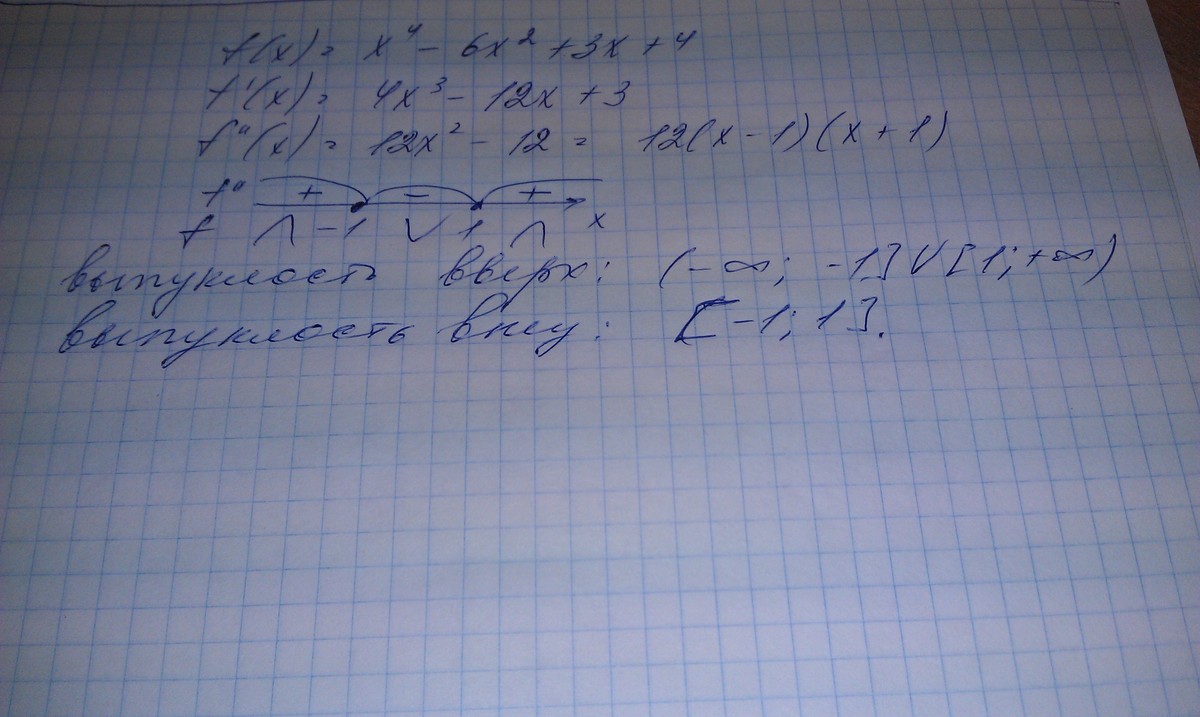 f(x) = x⁴ - 6x² + 3x + 4
f'(x) = 4x³ - 12x + 3
f''(x) = 12x² - 12 = 12(x-1)(x+1)
f'' + - +
f ∩ -1 ∪ 1 ∩ x
выпуклость вверх: (-∞; -1] ∪ [1; +∞)
выпуклость вниз: [-1; 1].